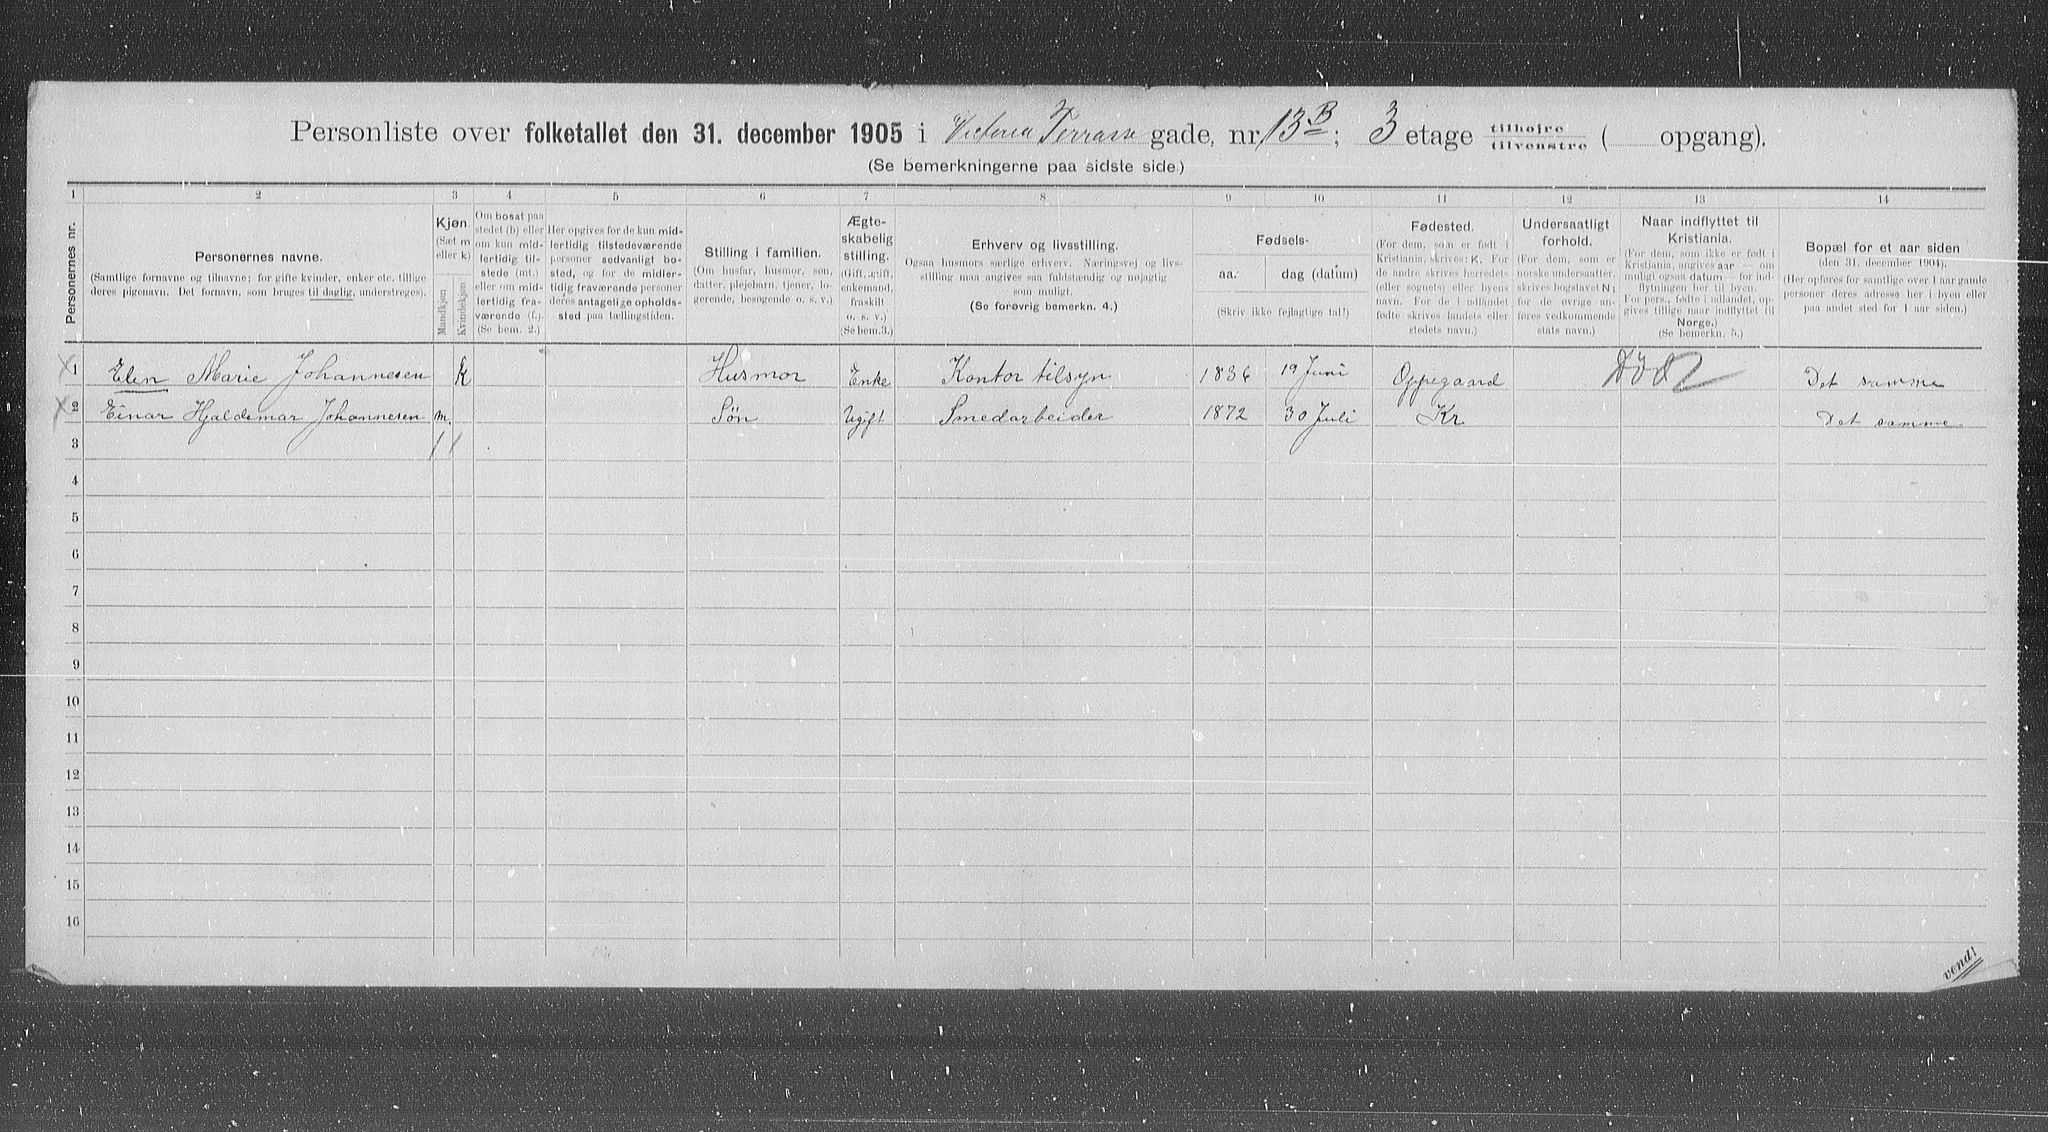 Personliste over folketallet den 31. december 1905 i Victoria Terrasse gade, nr. 13 B; 3 etage tilhøjre / tilvenstre ( opgang).
(Se bemerkningerne paa sidste side.)
1 2 3 4 5 6 7 8 9 10 11 12 13 14
Personernes nr.
Personernes navne.
(Samtlige fornavne og tilnavne; for gifte kvinder, enker etc. tillige
deres pigenavn. Det fornavn, som bruges til daglig, understreges).
Kjøn
(Sæt m
eller k)
Mandkjøn
Kvindekjøn
Om bosat paa
stedet (b) eller
om kun mid-
lertidig til-
stede (mt.)
eller om mid-
lertidig fra-
værende (f.).
(Se bem. 2.)
Her opgives for de kun mid-
lertidig tilstedeværende
personer sedvanligt bo-
sted, og for de midler-
tidig fraværende personer
deres antagelige opholds-
sted paa tællingstiden.
Stilling i familien.
(Om husfar, husmor, søn,
datter, plejebarn, tjener, lo-
gerende, besøgende o. s. v.)
Ægte-
skabelig
stilling.
(Gift, ugift,
enkemand,
fraskilt
o. s. v.)
(Se bem. 3.)
Erhverv og livsstilling.
Ogsaa husmors særlige erhverv. Næringsvej og livs-
stilling maa angives saa fuldstændig og nøjagtig
som muligt.
(Se forøvrig bemerkn. 4.)
Fødsels-
aar. dag (datum)
(Skriv ikke fejlagtige tal!)
Fødested.
(For dem, som er født i
Kristiania, skrives: K. For
de andre skrives herredets
(eller sognets) eller byens
navn. For de i udlandet
fødte skrives landets eller
stedets navn.)
Undersaatligt
forhold.
(For dem, som er
norske undersaatter,
skrives bogstavet N;
for de øvrige an-
føres vedkommende
stats navn.)
Naar indflyttet til
Kristiania.
(For dem, som ikke er født i
Kristiania, angives aar — om
muligt ogsaa datum — for ind-
flytningen her til byen.
For pers., fødte i udlandet, op-
gives tillige naar indflyttet til
Norge.)
(Se bemerkn. 5.)
Bopæl for et aar siden
(den 31. december 1904).
(Her opføres for samtlige over 1 aar gamle
personer deres adresse her i byen eller
paa andet sted for 1 aar siden.)
1 Elen Marie Johannesen k Husmor Enke Kontor tilsyn 1836 19 Juni Oppegaard Død Det samme
2 Einar Hjaldemar Johannesen m. Søn Ugift Smedarbeider 1872 30 Juli Kr. Det samme
3 1 1
4
5
6
7
8
9
10
11
12
13
14
15
16
vend!